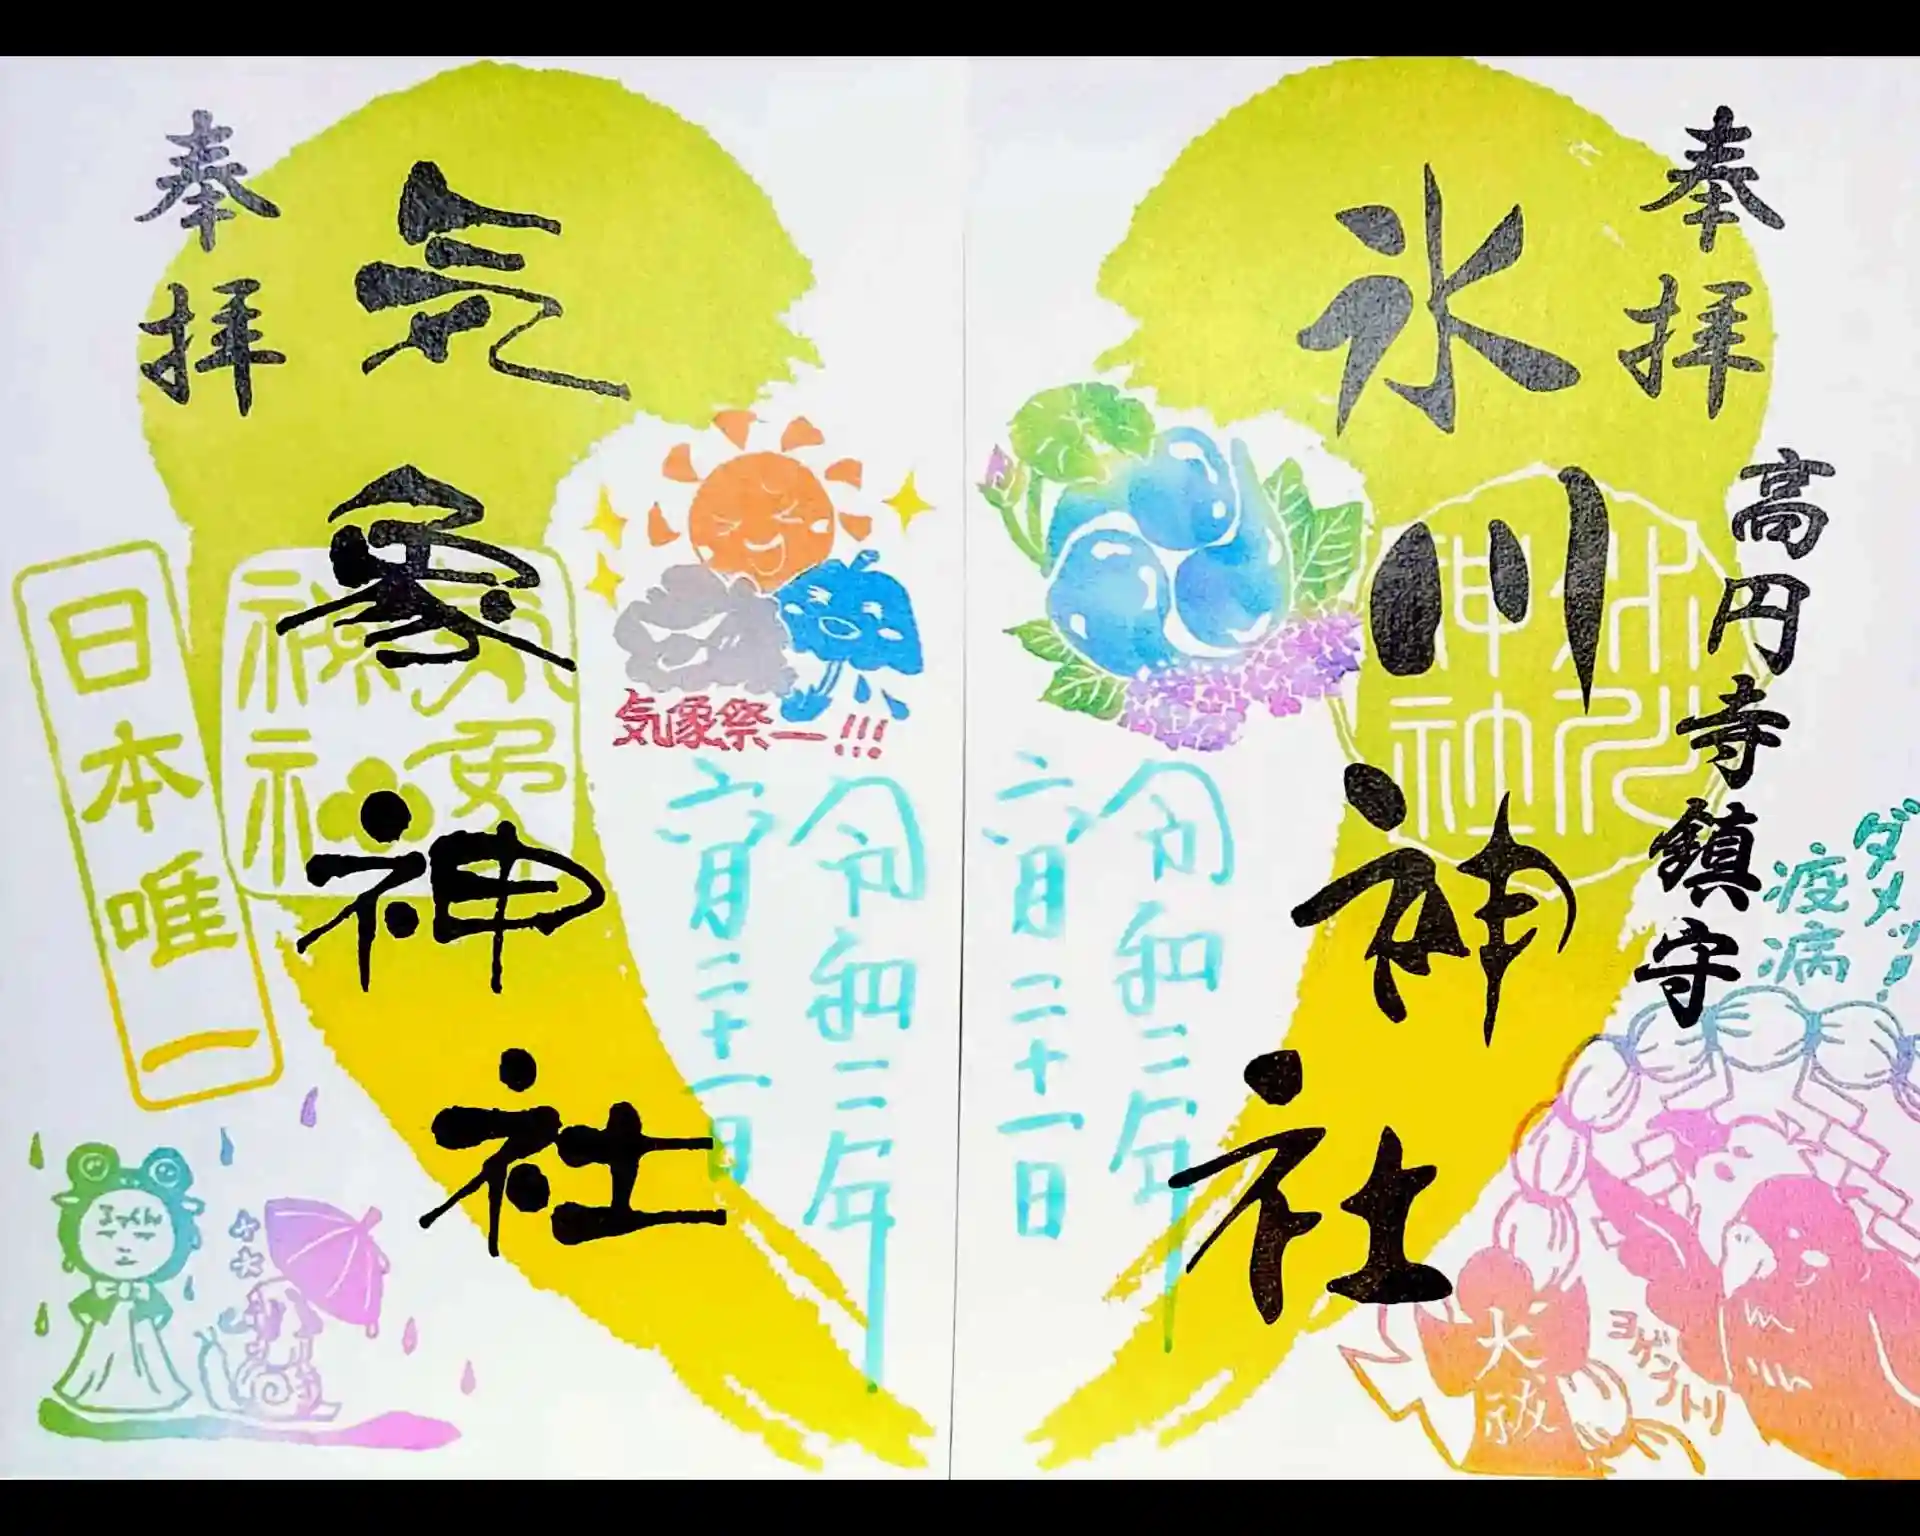 奉拝
高円寺鎮守
氷川神社
氷川神社
ダメッ!
疫病
大祓
ヨゲンノトリ
令和二年
六月二十一日
奉拝
気象神社
気象神社
日本唯一
気象祭ー!!!
令和二年
六月二十一日
るっくん